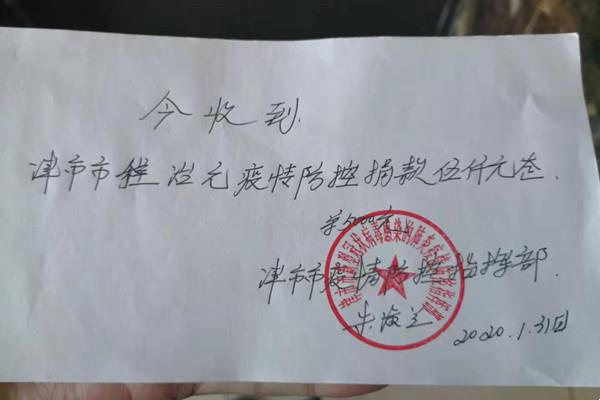 今收到
津市市程治元疫情防控捐款伍仟元整.
¥5000元
津市市疫情防控指挥部.
朱海兰
2020.1.31日